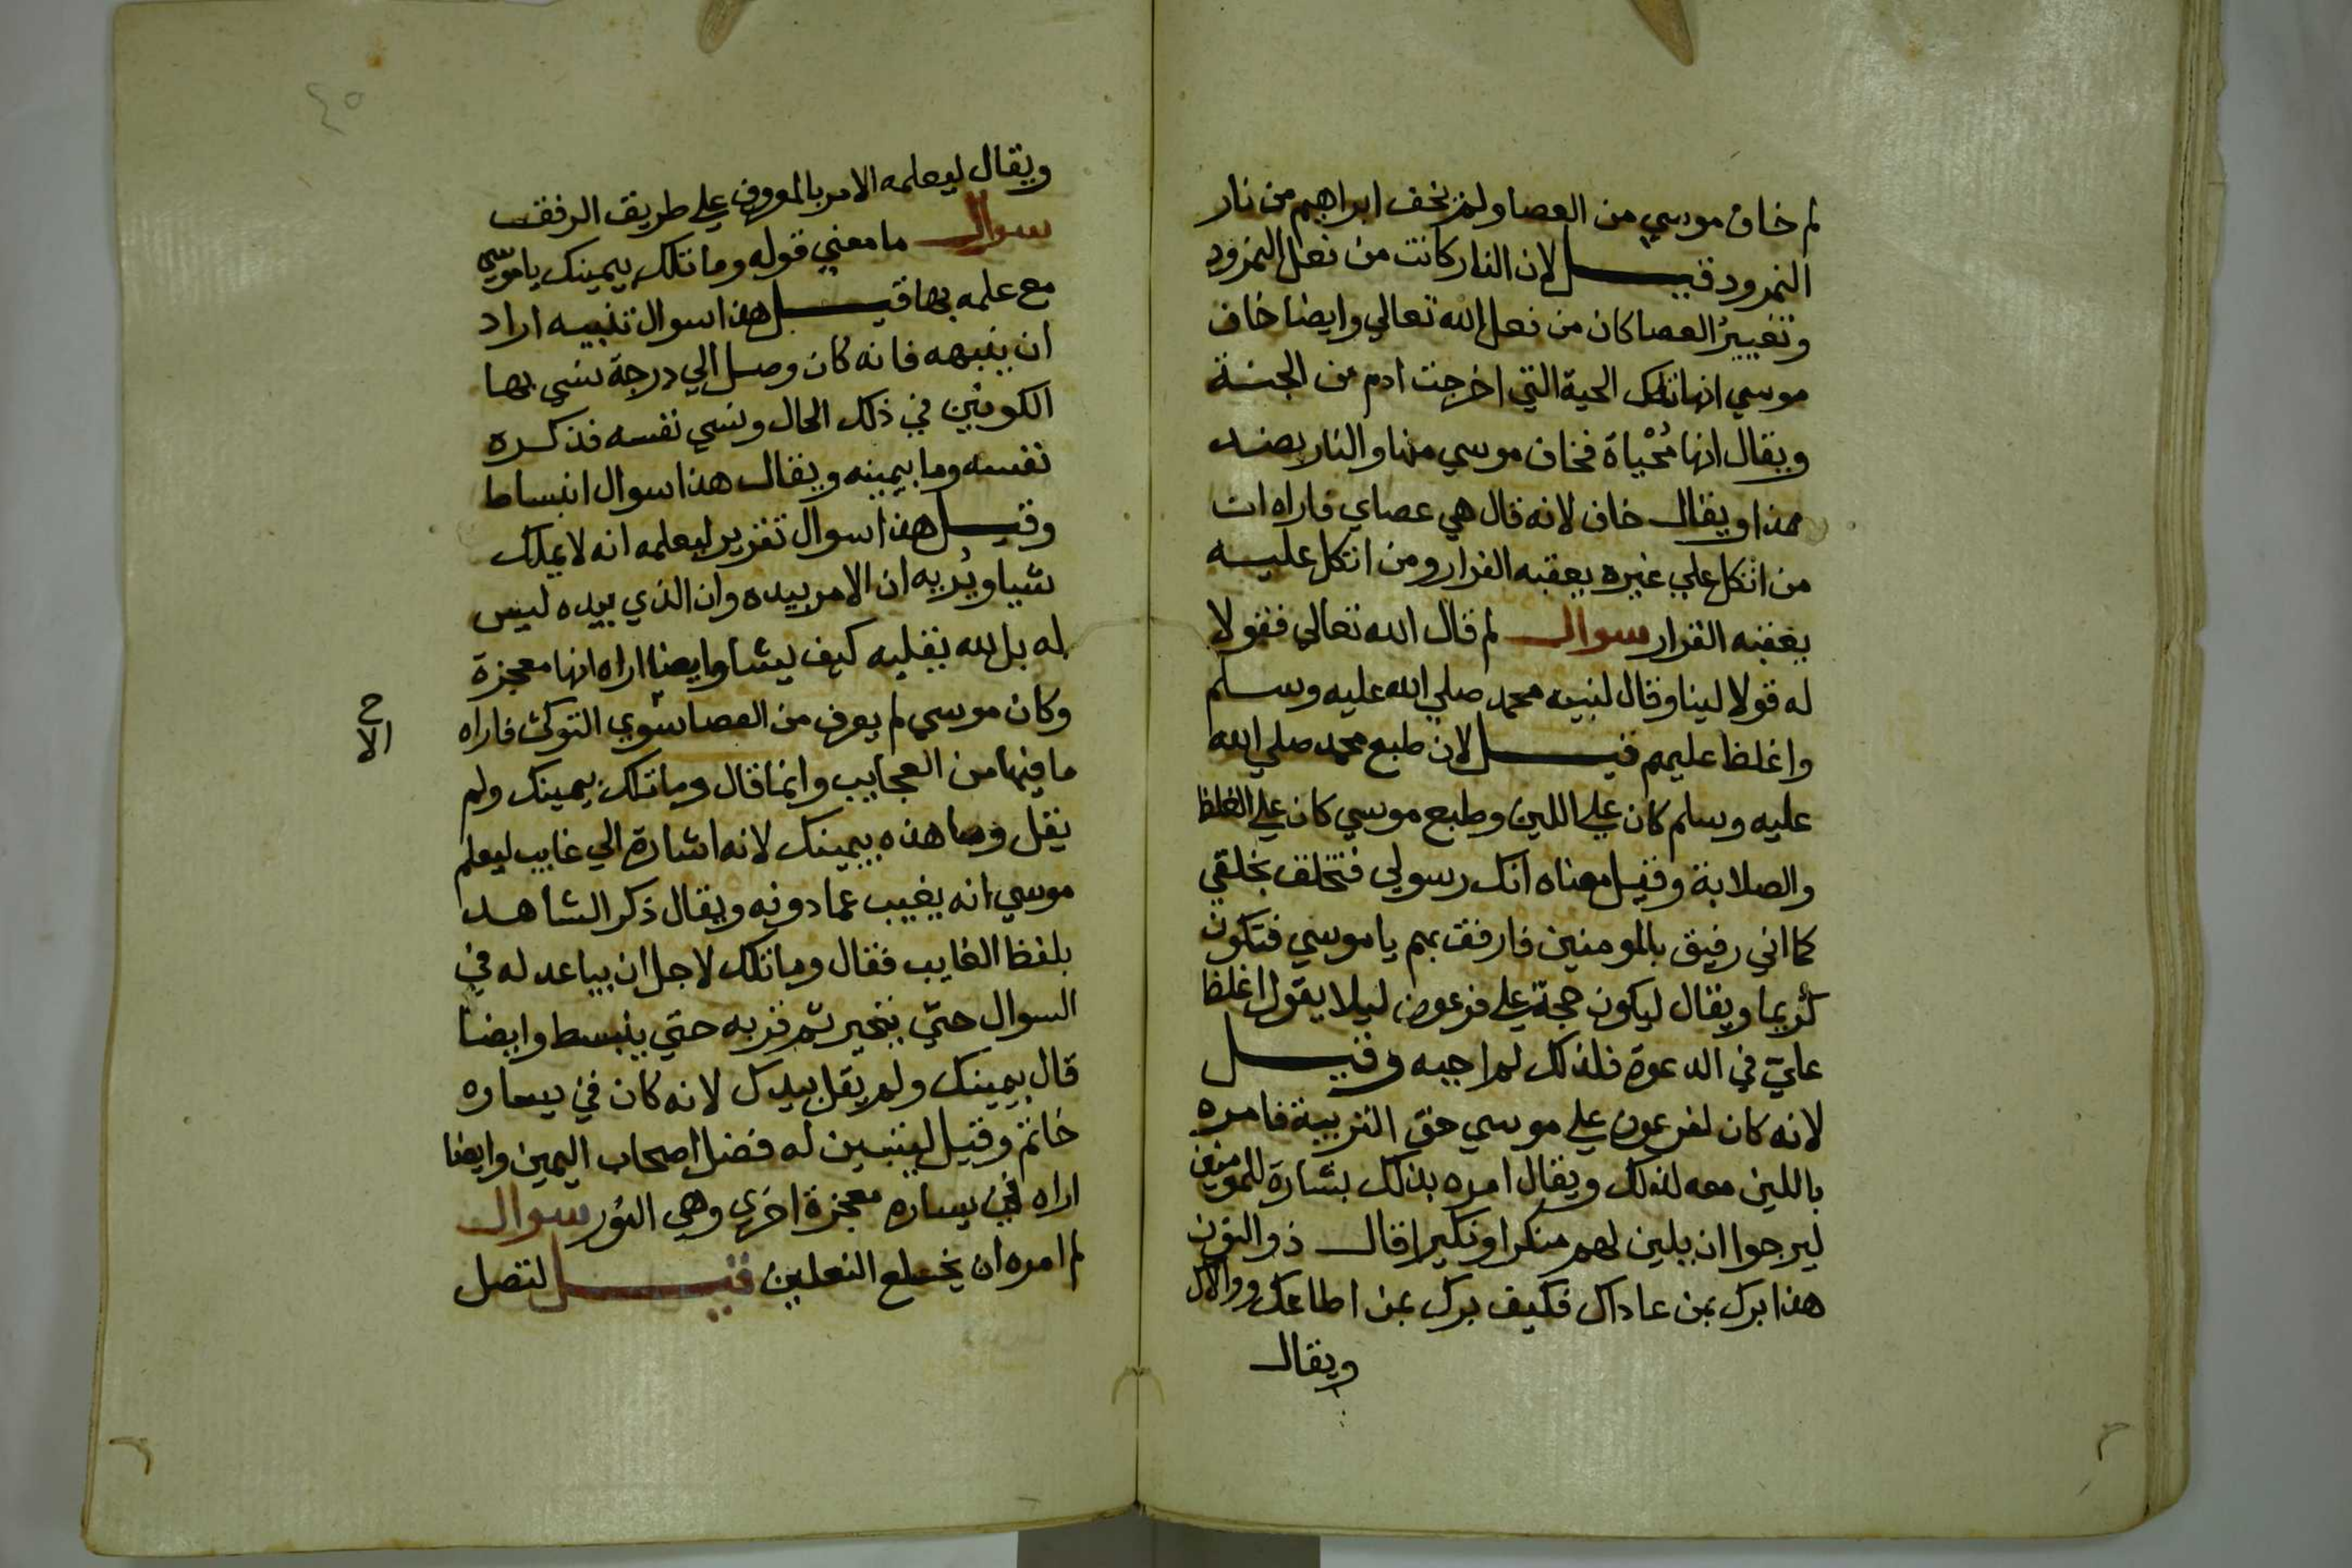 لم خاف موسي من العصا ولم يخف ابراهيم من نار
النمرود قيل لان النار كانت من فعل النمرود
وتغييرُ العصا كان من فعل الله تعالي وايضا خاف
موسي انها تلك الحية التي اخرجت ادم من الجنة
ويقال انها مُحْياة فخاف موسي منها والنار بضد
هذا ويقال خاف لانه قال هي عصاي فاراه ان
من اتكل علي غيره يعقبه الفرار ومن اتكل عليه
يعقبه القرار سوال لم قال الله تعالي فقولا
له قولا لينا وقال لنبيه محمد صلي الله عليه وسلم
واغلظ عليهم قيل لان طبع محمد صلي الله
عليه وسلم كان علي اللين وطبع موسي كان علي الغلظ
والصلابة وقيل معناه انك رسولي فتخلق بخلقي
كما اني رفيق بالمومنين فارفق بهم يا موسي فتكون
كريما ويقال ليكون حجة علي فرعون ليلا يقول اغلظ
عليّ في الدعوة فلذلك لم اجبه وقيل
لانه كان لفرعون علي موسي حق التربية فامره
باللين معه لذلك ويقال امره بذلك بشارة للمومنين
ليرجوا ان يلين لهم منكرا ونكيرا قال ذو النون
هذا برك بمن عاداك فكيف برك بمن اطاعك ووالاك
ويقال
٤٥
ويقال ليعلمه الامر بالمعروف علي طريق الرفق
سوال ما معني قوله وما تلك بيمينك يا موسي
مع علمه بها قيل هذا سوال تنبيه اراد
ان ينبهه فانه كان وصل الي درجة نسي بها
الكونين في ذلك الحال ونسي نفسه فذكره
نفسه وما بيمينه ويقال هذا سوال انبساط
وقيل هذا سوال تقرير ليعلمه انه لا يملك
شيا ويُريه ان الامر بيده وان الذي بيده ليس
له بل لله يقلبه كيف يشا وايضا اراه انها معجزة
وكان موسي لم يعرف من العصا سوي التوكئ فاراه
ما فيها من العجايب وانما قال وما تلك بيمينك ولم
يقل وما هذه بيمينك لانه اشارة الي غايب ليعلم
موسي انه يغيب عما دونه ويقال ذكر الشاهد
بلفظ الغايب فقال وما تلك لاجل ان يباعد له في
السوال حتي يتحير ثم قربه حتي ينبسط وايضا
قال بيمينك ولم يقل بيدك لانه كان في يساره
خاتم وقيل ليتبين له فضل اصحاب اليمين وايضا
اراه في يساره معجزة اخري وهي النُور سوال
لم امره ان يخلع النعلين قيل لتصل